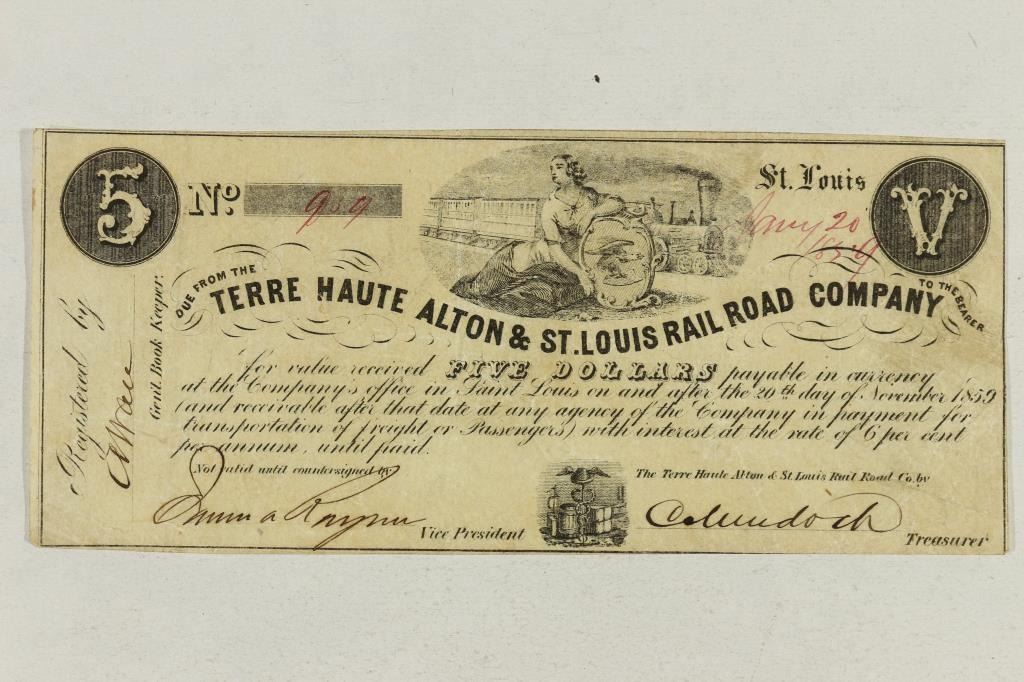 5
No. 959
St. Louis
Jany 20
1859
V
DUE FROM THE
TERRE HAUTE ALTON & ST. LOUIS RAIL ROAD COMPANY
TO THE BEARER
for value received FIVE DOLLARS payable in currency
at the Company's office in Saint Louis on and after the 20th day of November 1859
(and receivable after that date at any agency of the Company in payment for
transportation of freight or Passengers) with interest at the rate of 6 per cent
per annum, until paid.
Registered by
Genl. Book Keeper.
Not valid until countersigned by
Vice President
The Terre Haute Alton & St. Louis Rail Road Co. by
C Murdoch
Treasurer